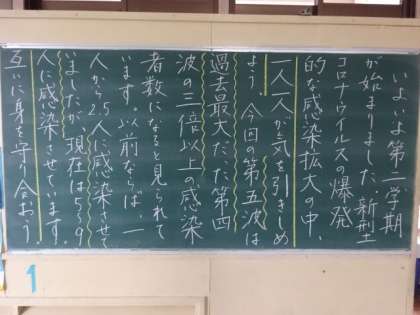 いよいよ第二学期
が始まりました。新型
コロナウイルスの爆発
的な感染拡大の中、
一人一人が気を引きしめ
よう。今回の第五波は
過去最大だった第四
波の三倍以上の感染
者数になると見られて
います。以前ならば、一
人から2.5人に感染させて
いましたが、現在は5~9
人に感染させています。
互いに身を守り合おう。
1